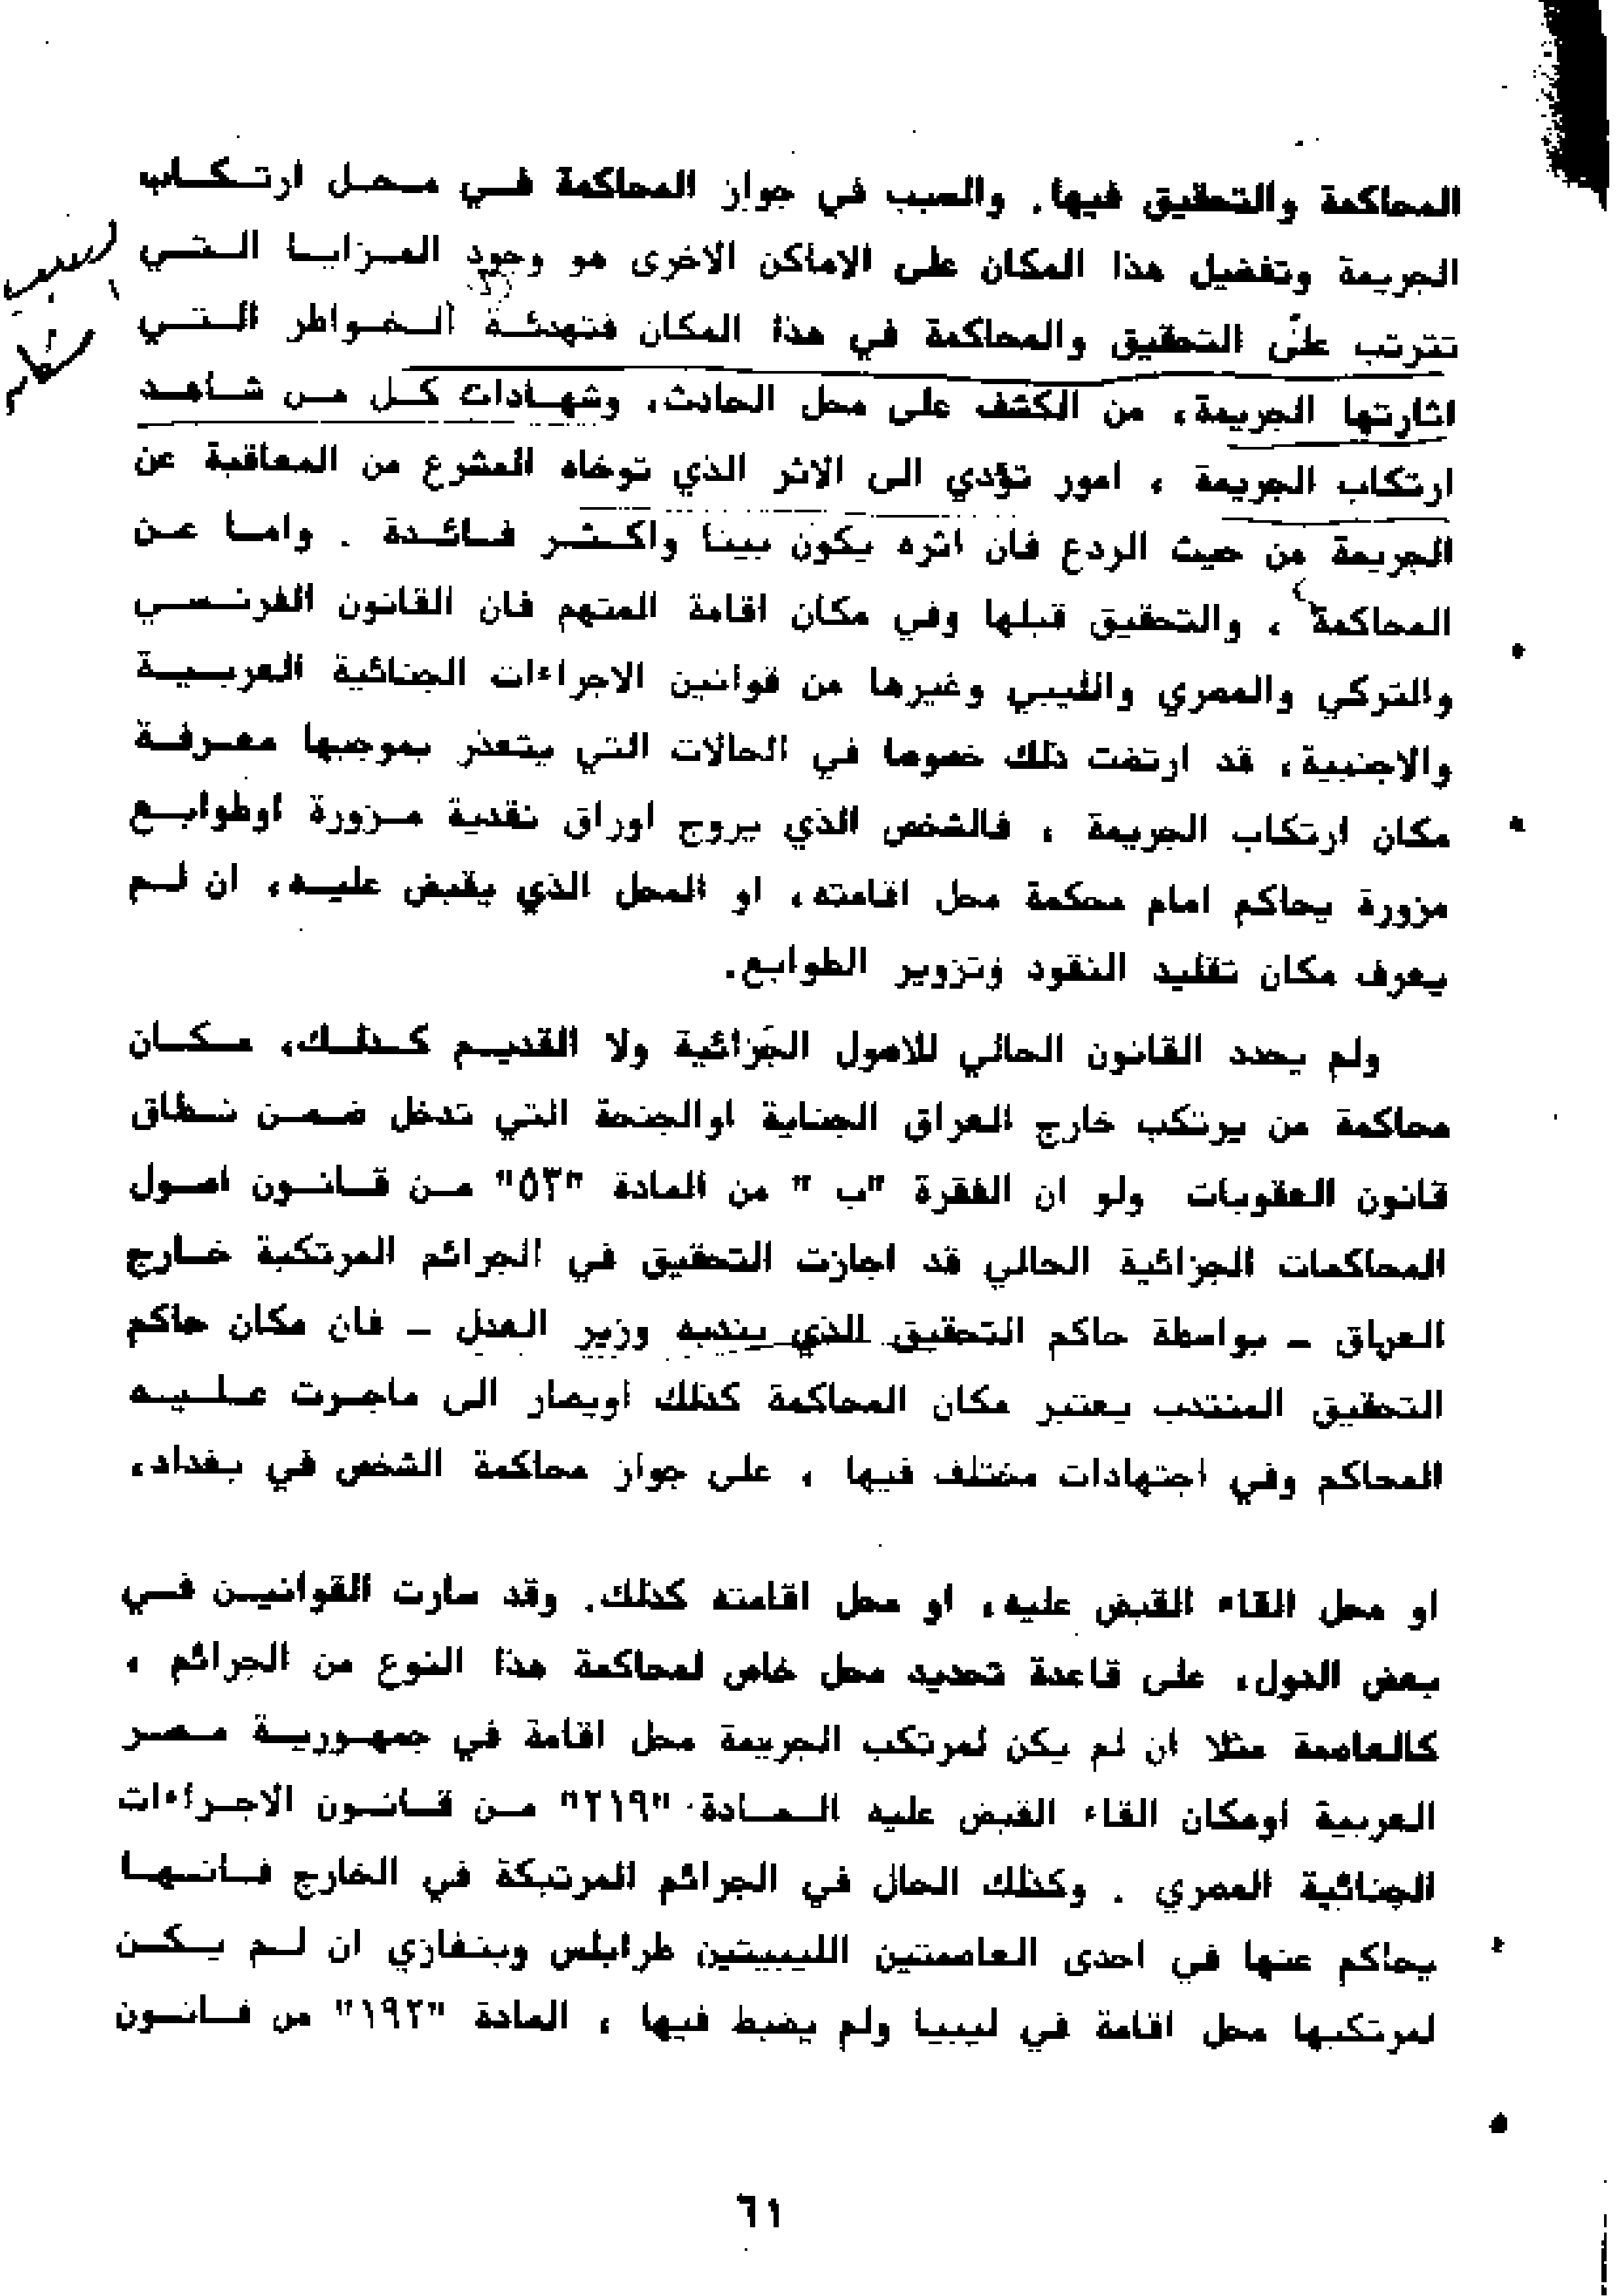 المحاكمة والتحقيق فيها. والسبب في جواز المحاكمة في محل ارتكاب
الجريمة وتفضيل هذا المكان على الاماكن الاخرى هو وجود المزايا التي
تترتب على التحقيق والمحاكمة في هذا المكان فتهدئة الخواطر التي
اثارتها الجريمة، من الكشف على محل الحادث، وشهادات كل من شاهد
ارتكاب الجريمة ، امور تؤدي الى الاثر الذي توخاه المشرع من المعاقبة عن
الجريمة من حيث الردع فان اثره يكون بينا واكثر فائدة . واما عن
المحاكمة ، والتحقيق قبلها وفي مكان اقامة المتهم فان القانون الفرنسي
والتركي والمصري والليبي وغيرها من قوانين الاجراءات الجنائية العربية
والاجنبية، قد ارتضت ذلك خصوصا في الحالات التي يتعذر بموجبها معرفة
مكان ارتكاب الجريمة ، فالشخص الذي يروج اوراق نقدية مزورة اوطوابع
مزورة يحاكم امام محكمة محل اقامته، او المحل الذي يقبض عليه، ان لم
يعرف مكان تقليد النقود وتزوير الطوابع.
ولم يحدد القانون الحالي للاصول الجزائية ولا القديم كذلك، مكان
محاكمة من يرتكب خارج العراق الجناية اوالجنحة التي تدخل ضمن نطاق
قانون العقوبات ولو ان الفقرة "ب " من المادة "٥٣" من قانون اصول
المحاكمات الجزائية الحالي قد اجازت التحقيق في الجرائم المرتكبة خارج
العراق - بواسطة حاكم التحقيق الذي يندبه وزير العدل - فان مكان حاكم
التحقيق المنتدب يعتبر مكان المحاكمة كذلك اويصار الى ماجرت عليه
المحاكم وفي اجتهادات مختلف فيها ، على جواز محاكمة الشخص في بغداد،
او محل القاء القبض عليه، او محل اقامته كذلك. وقد سارت القوانين في
بعض الدول، على قاعدة تحديد محل خاص لمحاكمة هذا النوع من الجرائم ،
كالعاصمة مثلا ان لم يكن لمرتكب الجريمة محل اقامة في جمهورية مصر
العربية اومكان القاء القبض عليه المادة "٢١٩" من قانون الاجراءات
الجنائية المصري . وكذلك الحال في الجرائم المرتبكة في الخارج فانها
يحاكم عنها في احدى العاصمتين الليبيتين طرابلس وبنغازي ان لم يكن
لمرتكبها محل اقامة في ليبيا ولم يضبط فيها ، المادة "١٩٢" من قانون
٦١